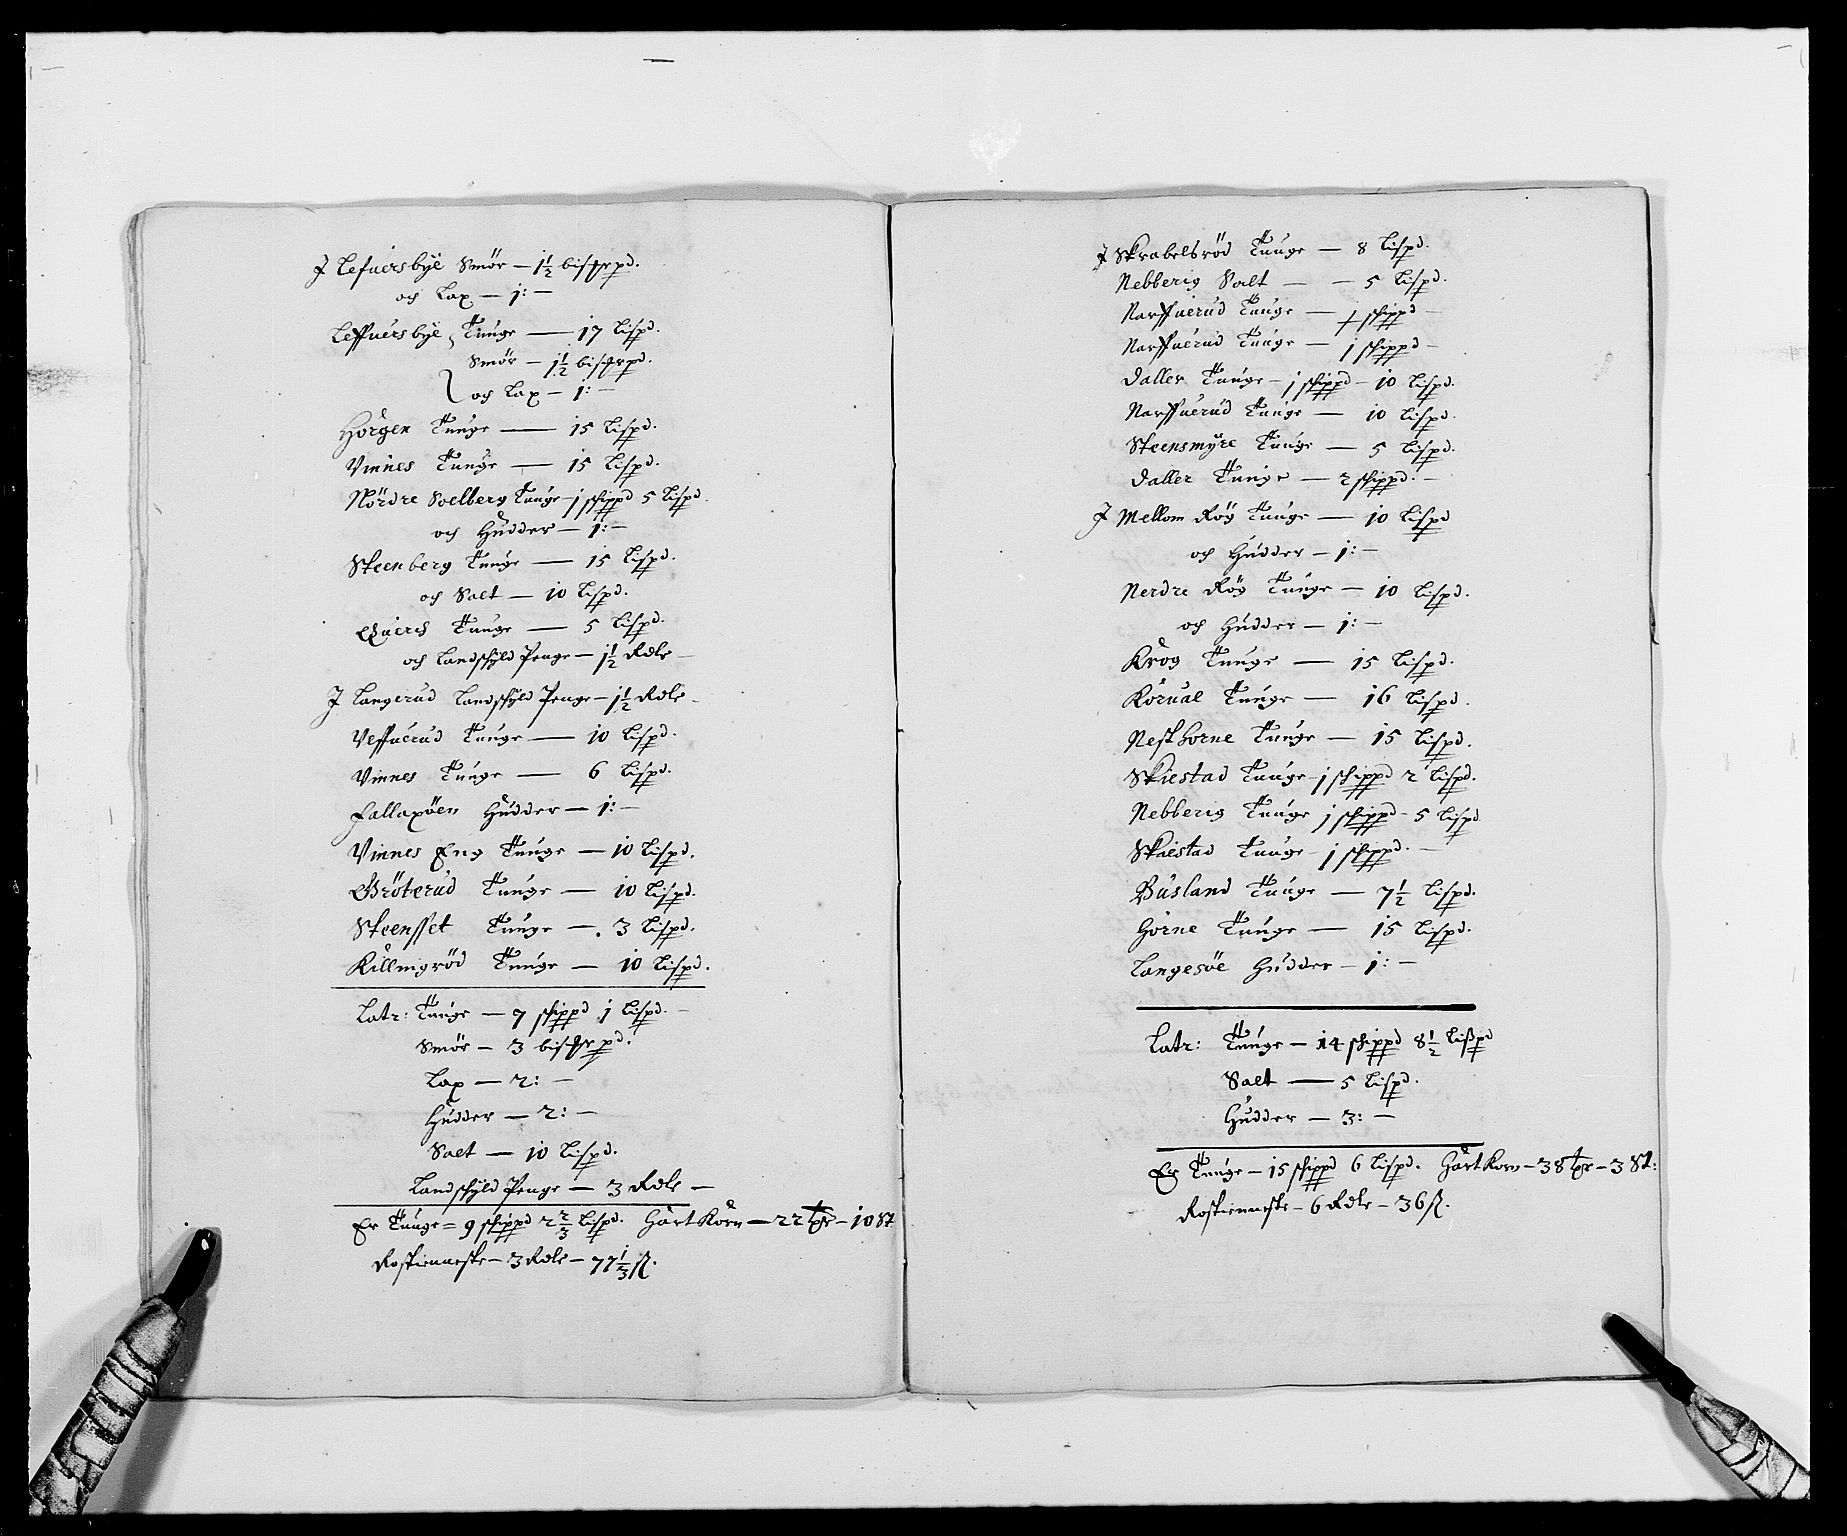 J Lefuersbye Smör — 1½ bißmrpd.
och Lax — 1: —
Leffuersbye Tunge — 17 Lispd.
Smör — 1½ bißmrpd.
och Lax — 1: —
Horgen Tunge — 15 Lispd.
Vinnes Tunge — 15 Lispd.
Nördre Solberg Tunge — 1 schippd 5 Lispd.
och Hudder — 1: —
Steenberg Tunge — 15 Lispd.
och Salt — 10 Lispd.
Tunge — 5 Lispd.
och Landschyld Penge — 1½ Rdlr —
J Langerud Landschyld Penge — 1½ Rdlr —
Veffuerud Tunge — 10 Lispd.
Vinnes Tunge — 6 Lispd.
Fallaxöen Hudder — 1: —
Vinnes Eng Tunge — 10 Lispd.
Gröterud Tunge — 10 Lispd.
Steensset Tunge — 3 Lispd.
Killingröd Tunge — 10 Lispd.
Latr: Tunge — 7 schippd 1 Lispd. —
Smör — 3 bißmrpd.
Lax — 2: —
Hudder — 2: —
Salt — 10 Lispd.
Landschyld Penge — 3 Rdlr —
Er Tunge = 9 schippd 2⅔ Lispd. Hart Korn — 22 tpr — 10 St
Rostienneste — 3 Rdlr — 77⅓ ß.
J Skrabelsröd Tunge — 8 Lispd.
Nebberig Salt — — 5 Lispd.
Narffuerud Tunge — 1 schippd —
Narffuerud Tunge — 1 schippd —
Daller Tunge — 1 schippd — 10 Lispd.
Narffuerud Tunge — 10 Lispd.
Steensmyre Tunge — 5 Lispd.
Daller Tunge — 2 schippd. —
J Mellom Röy Tunge — 10 Lispd
och Hudder — 1: —
Nerdre Röy Tunge — 10 Lispd.
och Hudder — 1: —
Krog Tunge — 15 Lispd.
Korual Tunge — 16 Lispd.
Nest Horne Tunge — 15 Lispd.
Skiestad Tunge — 1 schippd 2 Lispd.
Nebberig Tunge 1 schippd — 5 Lispd
Skiestad Tunge — 1 schippd. —
Busland Tunge — 7½ Lispd.
Horne Tunge — 15 Lispd.
Langesöe Hudder — 1: —
Latr: Tunge — 14 schippd 8½ Lißpd
Salt — 5 Lispd.
Hudder — 3: —
Er Tunge — 15 schippd 6 Lispd. Hart Korn — 38 tpr — 3 St:
Rostienneste — 6 Rdlr — 36 ß.